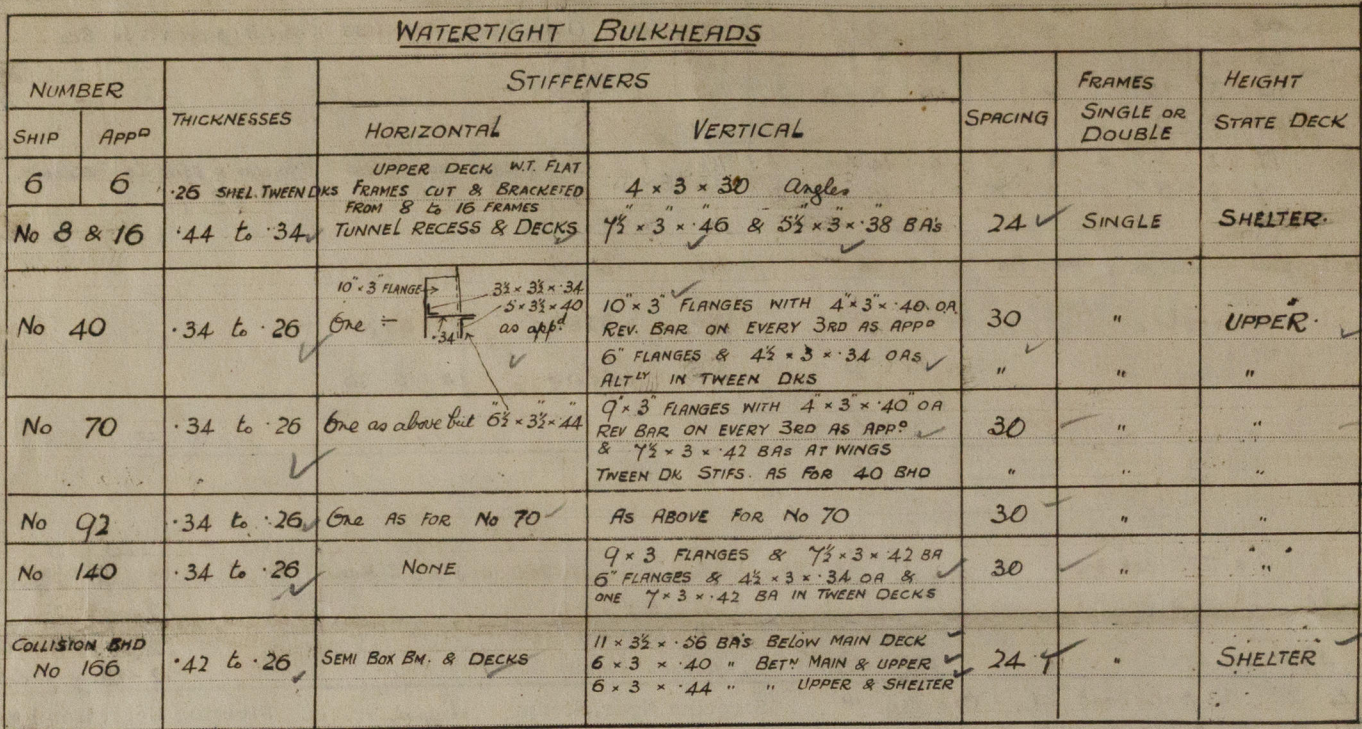 WATERTIGHT BULKHEADS
NUMBER
SHIP APPD
THICKNESSES
STIFFENERS
HORIZONTAL
VERTICAL
SPACING
FRAMES
SINGLE OR
DOUBLE
HEIGHT
STATE DECK
6 6
·26 SHEL. TWEEN DKS
UPPER DECK W.T. FLAT
FRAMES CUT & BRACKETED
FROM 8 to 16 FRAMES
4 × 3 × 30 Angles
No 8 & 16
·44 to ·34
TUNNEL RECESS & DECKS
7½" × 3" × ·46 & 5½" × 3" × ·38 BA's
24
SINGLE
SHELTER.
No 40
·34 to ·26
10" × 3" FLANGE
3½ × 3½ × ·34
5 × 3½ × ·40
One :- as appd
·34
10" × 3" FLANGES WITH 4" × 3" × ·40 OA
REV. BAR ON EVERY 3RD AS APPD
6" FLANGES & 4½ × 3 × ·34 OAs
ALTLY IN TWEEN DKS
30 " UPPER.
" " "
No 70
·34 to ·26
One as above but 6½" × 3½" × ·44"
9" × 3" FLANGES WITH 4" × 3" × ·40" OA
REV BAR ON EVERY 3RD AS APPD
& 7½ × 3 × ·42 BAs AT WINGS
TWEEN DK STIFS. AS FOR 40 BHD
30 " "
" " "
No 92
·34 to ·26
One AS FOR No 70
AS ABOVE FOR No 70
30 " "
No 140
·34 to ·26
NONE
9 × 3 FLANGES & 7½ × 3 × ·42 BA
6" FLANGES & 4½ × 3 × ·34 OA &
ONE 7 × 3 × ·42 BA IN TWEEN DECKS
30 " " "
"
COLLISION BHD
No 166
·42 to ·26
SEMI BOX BM. & DECKS
11 × 3½ × ·56 BA's BELOW MAIN DECK
6 × 3 × ·40 " BETN MAIN & UPPER
6 × 3 × ·44 " " UPPER & SHELTER
24 " SHELTER